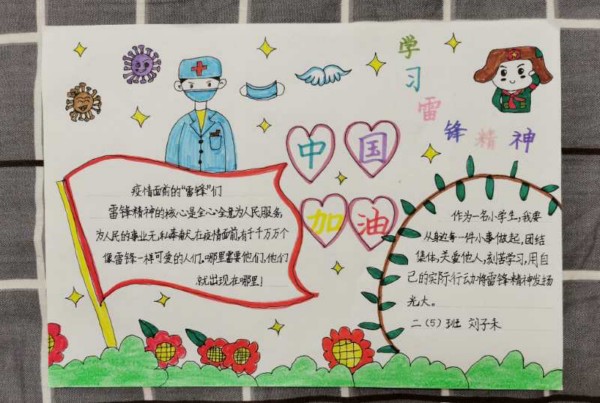 学习雷锋精神
中国
加油
疫情面前的“雷锋”们
雷锋精神的核心是全心全意为人民服务,
为人民的事业无私奉献,在疫情面前,有千千万万个
像雷锋一样可爱的人们,哪里需要他们,他们
就出现在哪里!
作为一名小学生,我要
从身边每一件小事做起,团结
集体,关爱他人,刻苦学习,用自
己的实际行动将雷锋精神发扬
光大。
二(5)班 刘子禾